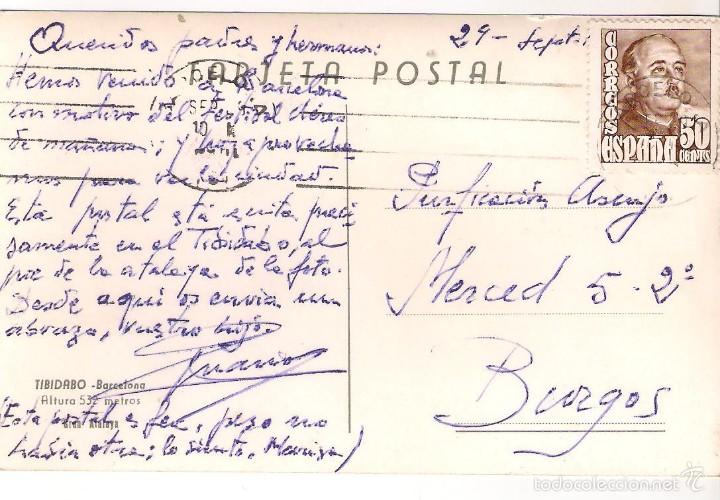 Queridos padres y hermanos:
29 - Sept.
TARJETA POSTAL
CORREOS
ESPAÑA
50
CENTMS
Hemos venido a Barcelona
con motivo del Festival aéreo
de mañana; y hoy aprovecha
mos para ver la ciudad.
Esta postal está escrita preci
samente en el Tibidabo, al
pie de la atalaya de la foto.
Desde aquí os envía un
abrazo, vuestro hijo.
SEP
10
Purificación Asenjo
Merced 5 - 2º
Burgos
TIBIDABO - Barcelona
Altura 532 metros
Gran Atalaya
(Esta postal es fea, pero no
había otra; lo siento,
todocoleccion